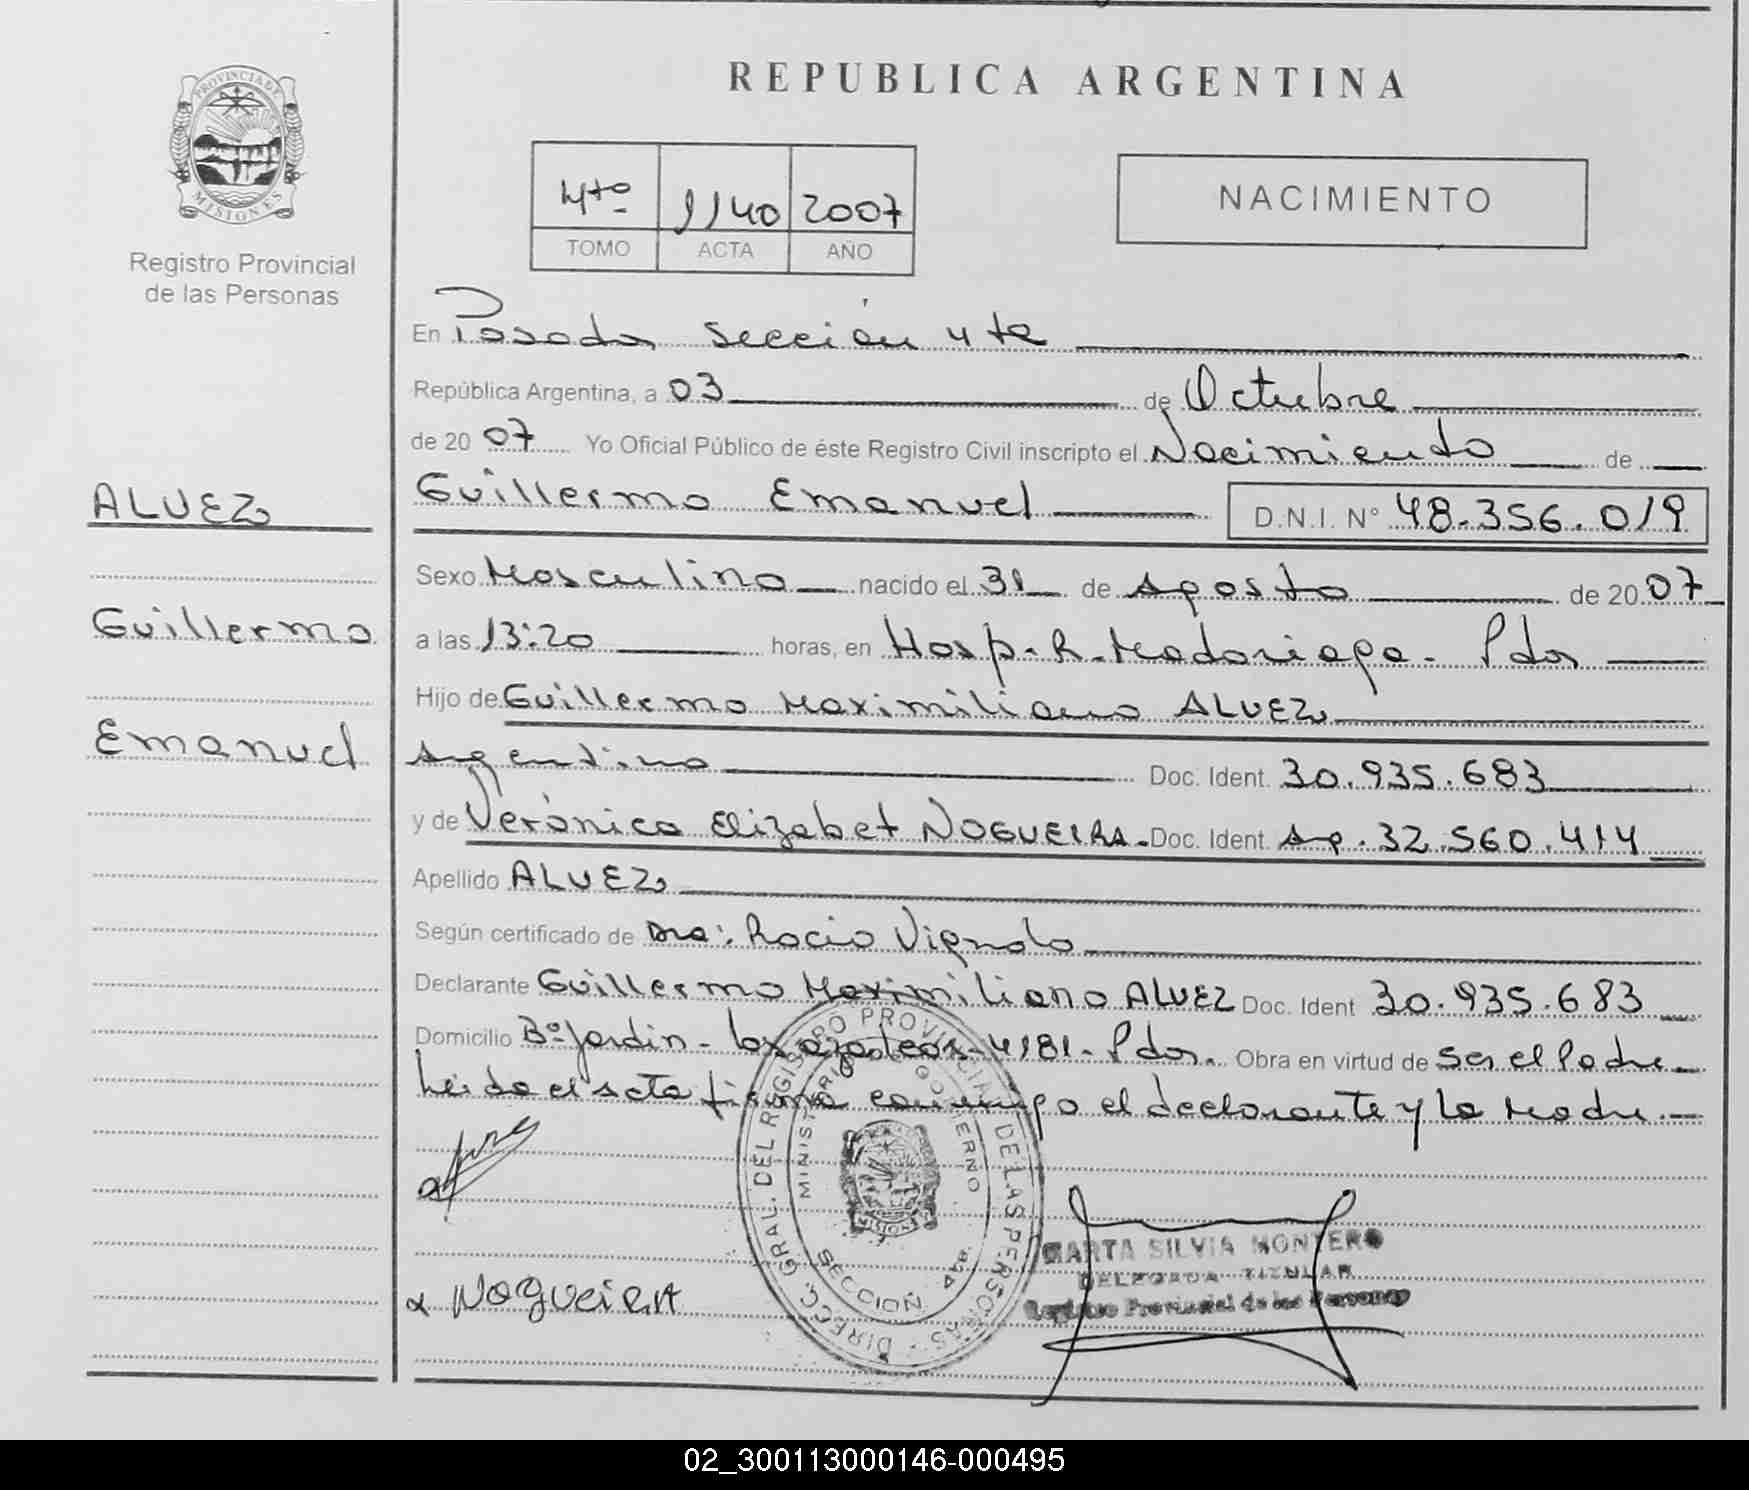 PROVINCIA DE
MISIONES
Registro Provincial
de las Personas
REPUBLICA ARGENTINA
4to 1140 2007
TOMO ACTA AÑO
NACIMIENTO
En Posadas sección 4ta
República Argentina, a 03 de Octubre
de 20 07 Yo Oficial Público de éste Registro Civil inscripto el Nacimiento de
ALVEZ
Guillermo Emanuel D.N.I. N° 48.356.019
Sexo Masculino nacido el 31 de Agosto de 20 07
Guillermo
a las 13:20 horas, en Hosp. R. Madariaga. Pdas
Hijo de Guillermo Maximiliano ALVEZ
Emanuel
Argentino Doc. Ident. 30.935.683
y de Verónica Elizabet NOGUEIRA. Doc. Ident. Ap. 32.560.414
Apellido ALVEZ
Según certificado de Dra: Rocio Vignolo
Declarante Guillermo Maximiliano ALVEZ Doc. Ident 30.935.683
Domicilio B° Jardin - Los azaleas - 4181 - Pdas. Obra en virtud de ser el Padre
Leida el acta firma conmigo el declarante y la Madre.
DIRECC. GRAL. DEL REGISTRO PROVINCIAL DE LAS PERSONAS
MINISTERIO DE GOBIERNO
MISIONES
SECCION
MARTA SILVIA MONTERO
DELEGADA TITULAR
Registro Provincial de las Personas
NOGUEIRA
02_300113000146-000495